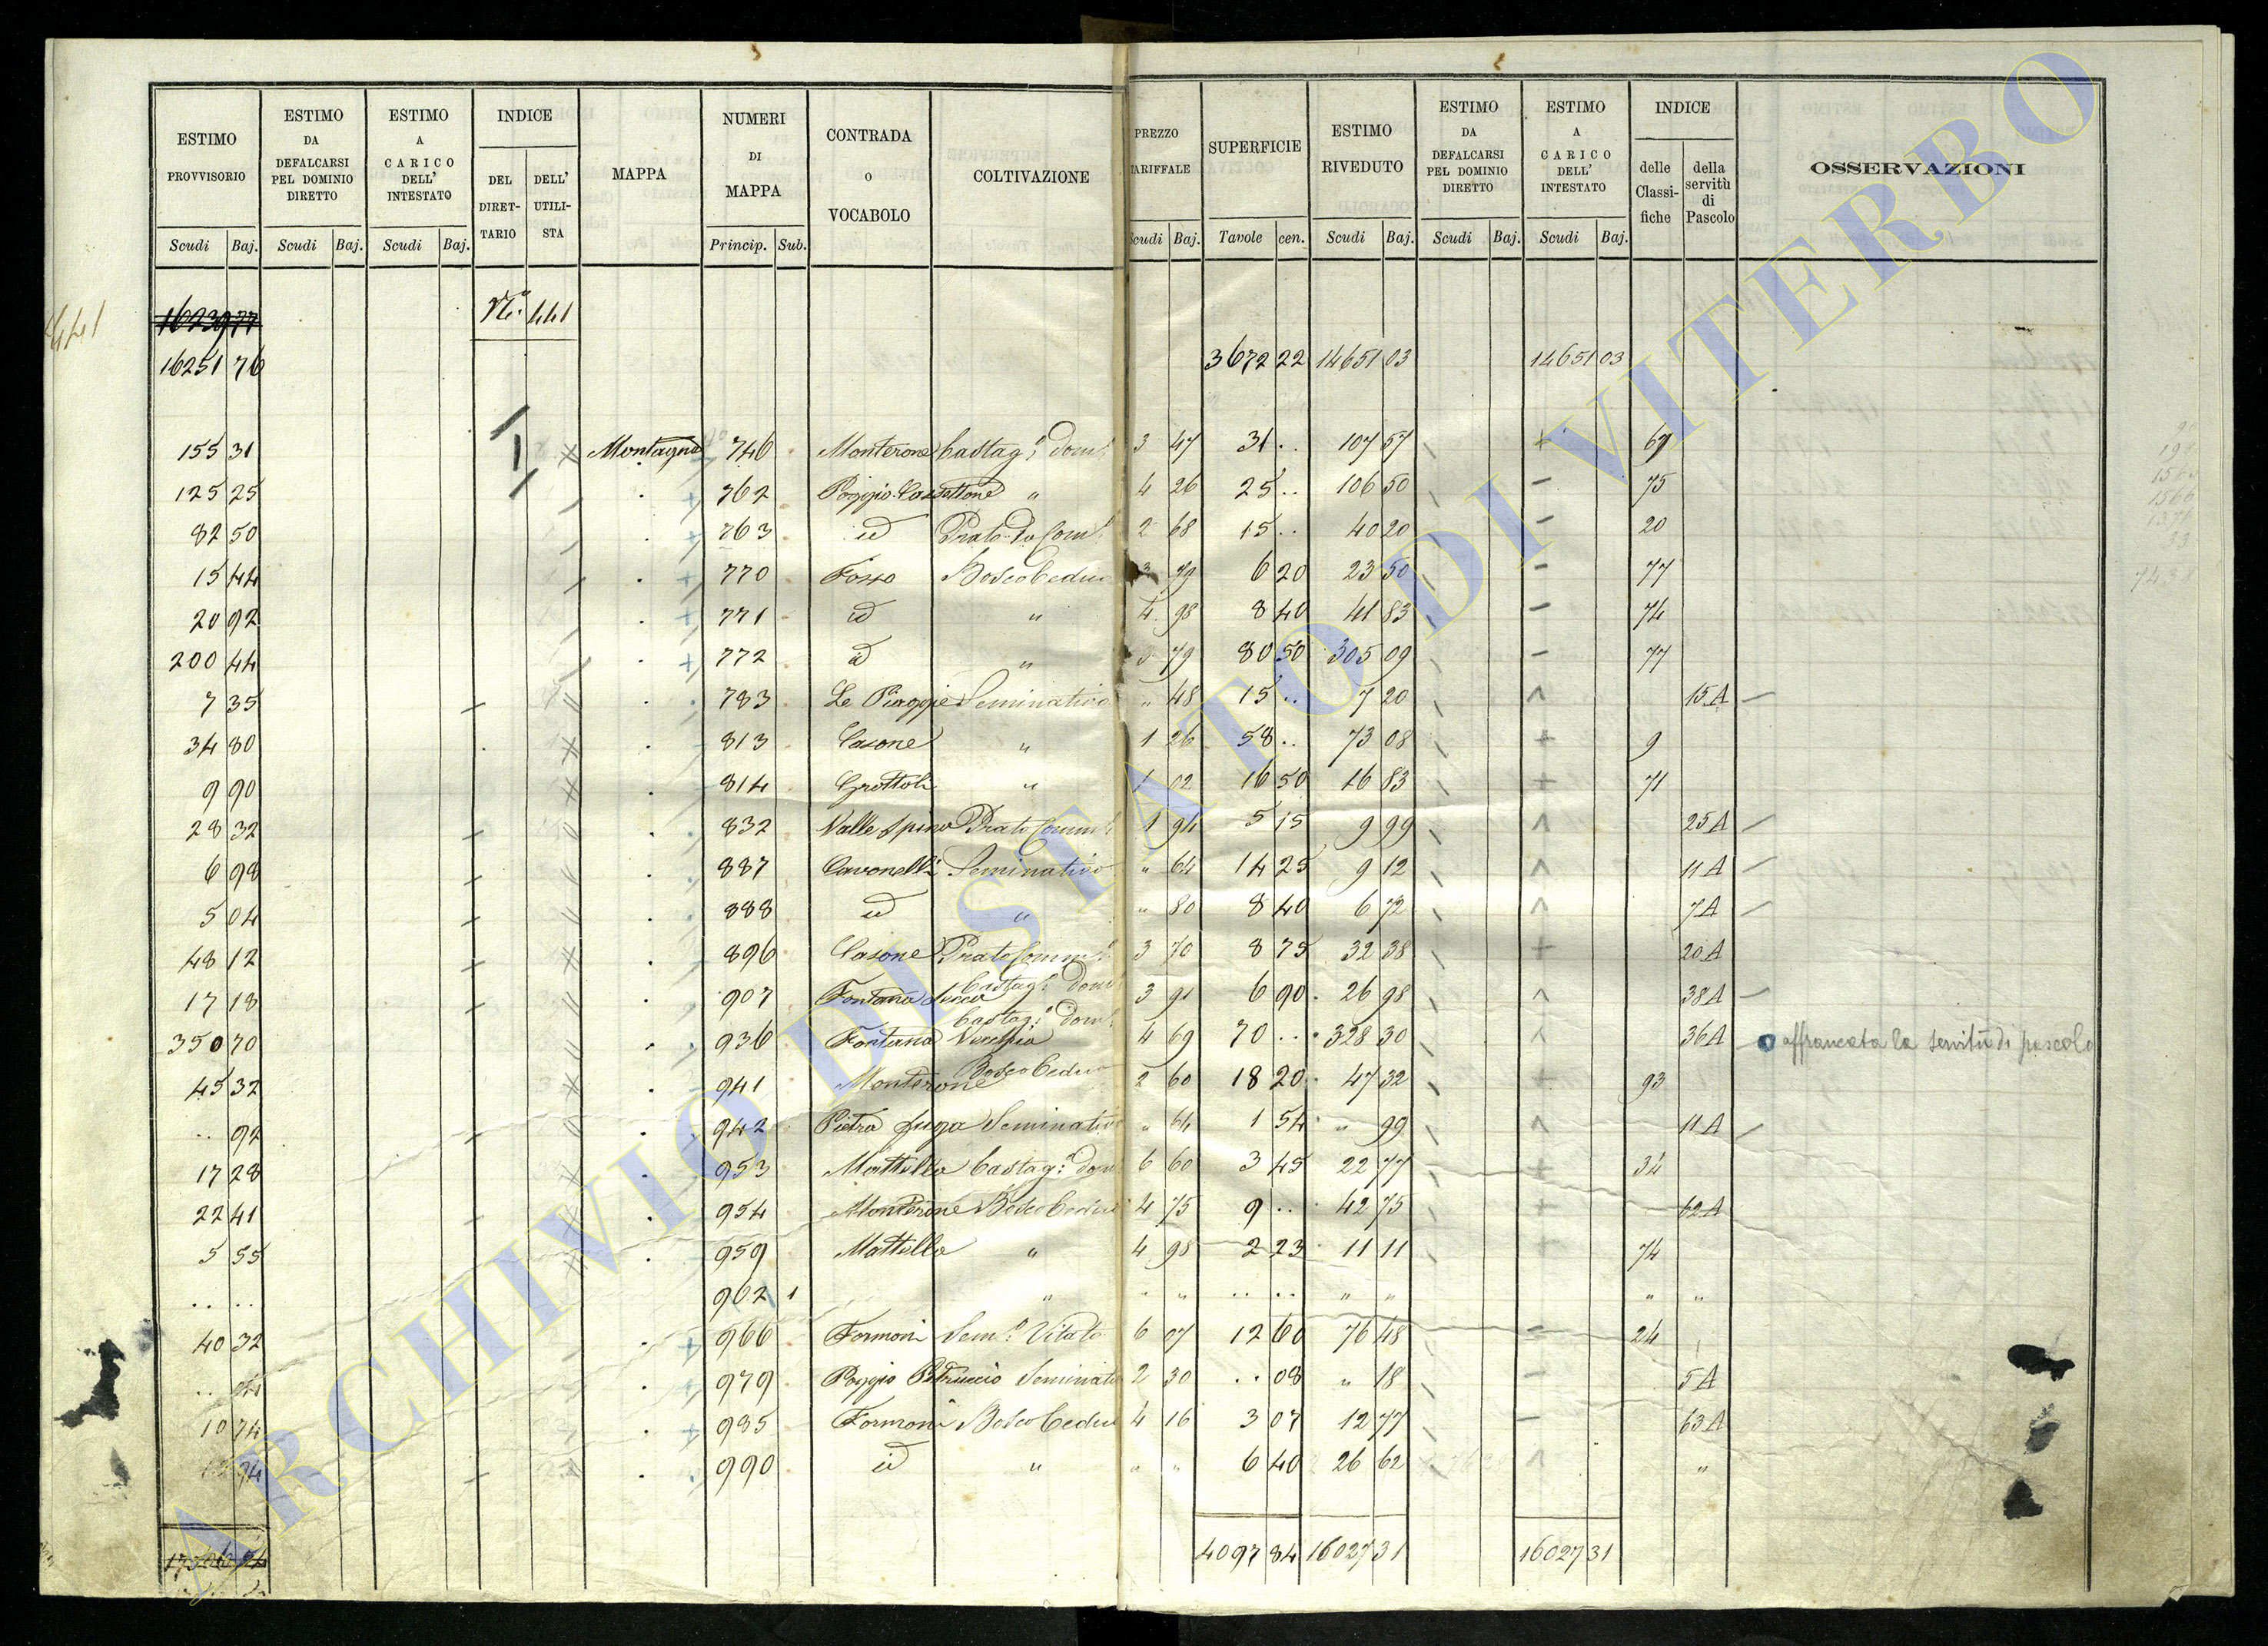 ESTIMO PROVVISORIO | ESTIMO DA DEFALCARSI PEL DOMINIO DIRETTO | ESTIMO A CARICO DELL' INTESTATO | INDICE DEL DIRETTARIO | DELL' UTILISTA | MAPPA | NUMERI DI MAPPA | CONTRADA O VOCABOLO | COLTIVAZIONE | PREZZO TARIFFALE | SUPERFICIE | ESTIMO RIVEDUTO | ESTIMO DA DEFALCARSI PEL DOMINIO DIRETTO | ESTIMO A CARICO DELL' INTESTATO | INDICE delle Classifiche | della servitù di Pascolo | OSSERVAZIONI
Scudi Baj. | Scudi Baj. | Scudi Baj. | Princip. Sub. | Scudi Baj. | Tavole cen. | Scudi Baj. | Scudi Baj. | Scudi Baj.
441 16239 77 441
16251 76 3672 22 14651 03 14651 03
155 31 Montagna 746 Monterone Castag.o dom. 3 47 31 .. 107 57 69
125 25 762 Poggio Cassettone " 4 26 25 .. 106 50 75
82 50 763 id Prato 2 68 15 .. 40 20 20
15 44 770 Fosso Bosco Ceduo 3 79 6 20 23 50 77
20 92 771 id " 4 98 8 40 41 83 74
200 44 772 id " 3 79 80 50 305 09 77
7 35 783 Le Piagge Seminativo " 48 15 .. 7 20 15 A
34 80 813 Casone " 1 26 58 .. 73 08 9
9 90 814 Grottoli " 1 02 16 50 16 83 71
28 32 832 Valle Spino Prato 1 94 5 15 9 99 25 A
6 98 887 Cavonelli Seminativo " 64 14 25 9 12 11 A
5 04 888 id " " 80 8 40 6 72 7 A
48 12 896 Casone Prato 3 70 8 75 32 38 20 A
17 18 907 Fontana Secca Castag.o dom. 3 91 6 90 26 98 38 A
350 70 936 Fontana Vecchia Castag.o dom. 4 69 70 .. 328 30 36 A affrancata la servitù di pascolo
45 32 941 Monterone Bosco Ceduo 2 60 18 20 47 32 93
.. 92 942 Pietra Seminativo " 64 1 54 " 99 11 A
17 28 953 Mattella Castag.o dom. 6 60 3 45 22 77 34
22 41 954 Monterone Bosco Ceduo 4 75 9 .. 42 75 62 A
5 55 959 Mattella " 4 98 2 23 11 11 74
.. .. 962 1 " " " .. .. " " " "
40 32 966 Formoni Sem.o Vitato 6 07 12 60 76 48 24
979 Poggio Petruccio Seminativo 2 30 .. 08 " 18 5 A
10 74 985 Formoni Bosco Ceduo 4 16 3 07 12 77 63 A
990 id " " " 6 40 26 62 "
4097 84 16027 31 16027 31
ARCHIVIO DI STATO DI VITERBO